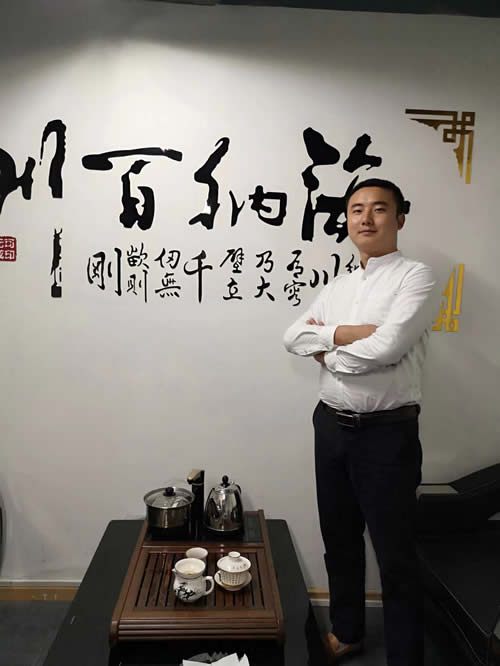 海纳百川
川有容乃大壁立千仞無欲則剛